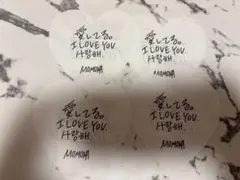 愛してる。
I LOVE YOU.
사랑해.
MOMOKA
愛してる。
I LOVE YOU.
사랑해.
MOMOKA
愛してる。
I LOVE YOU.
사랑해.
MOMOKA
愛してる。
I LOVE YOU.
사랑해.
MOMOKA